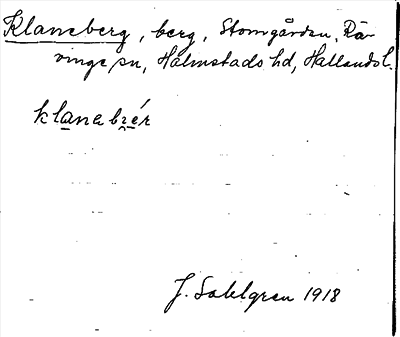 Klaneberg, berg, Stomgården, Rä-
vinge sn, Halmstads hd, Hallands l.
klanebær
J. Sahlgren 1918